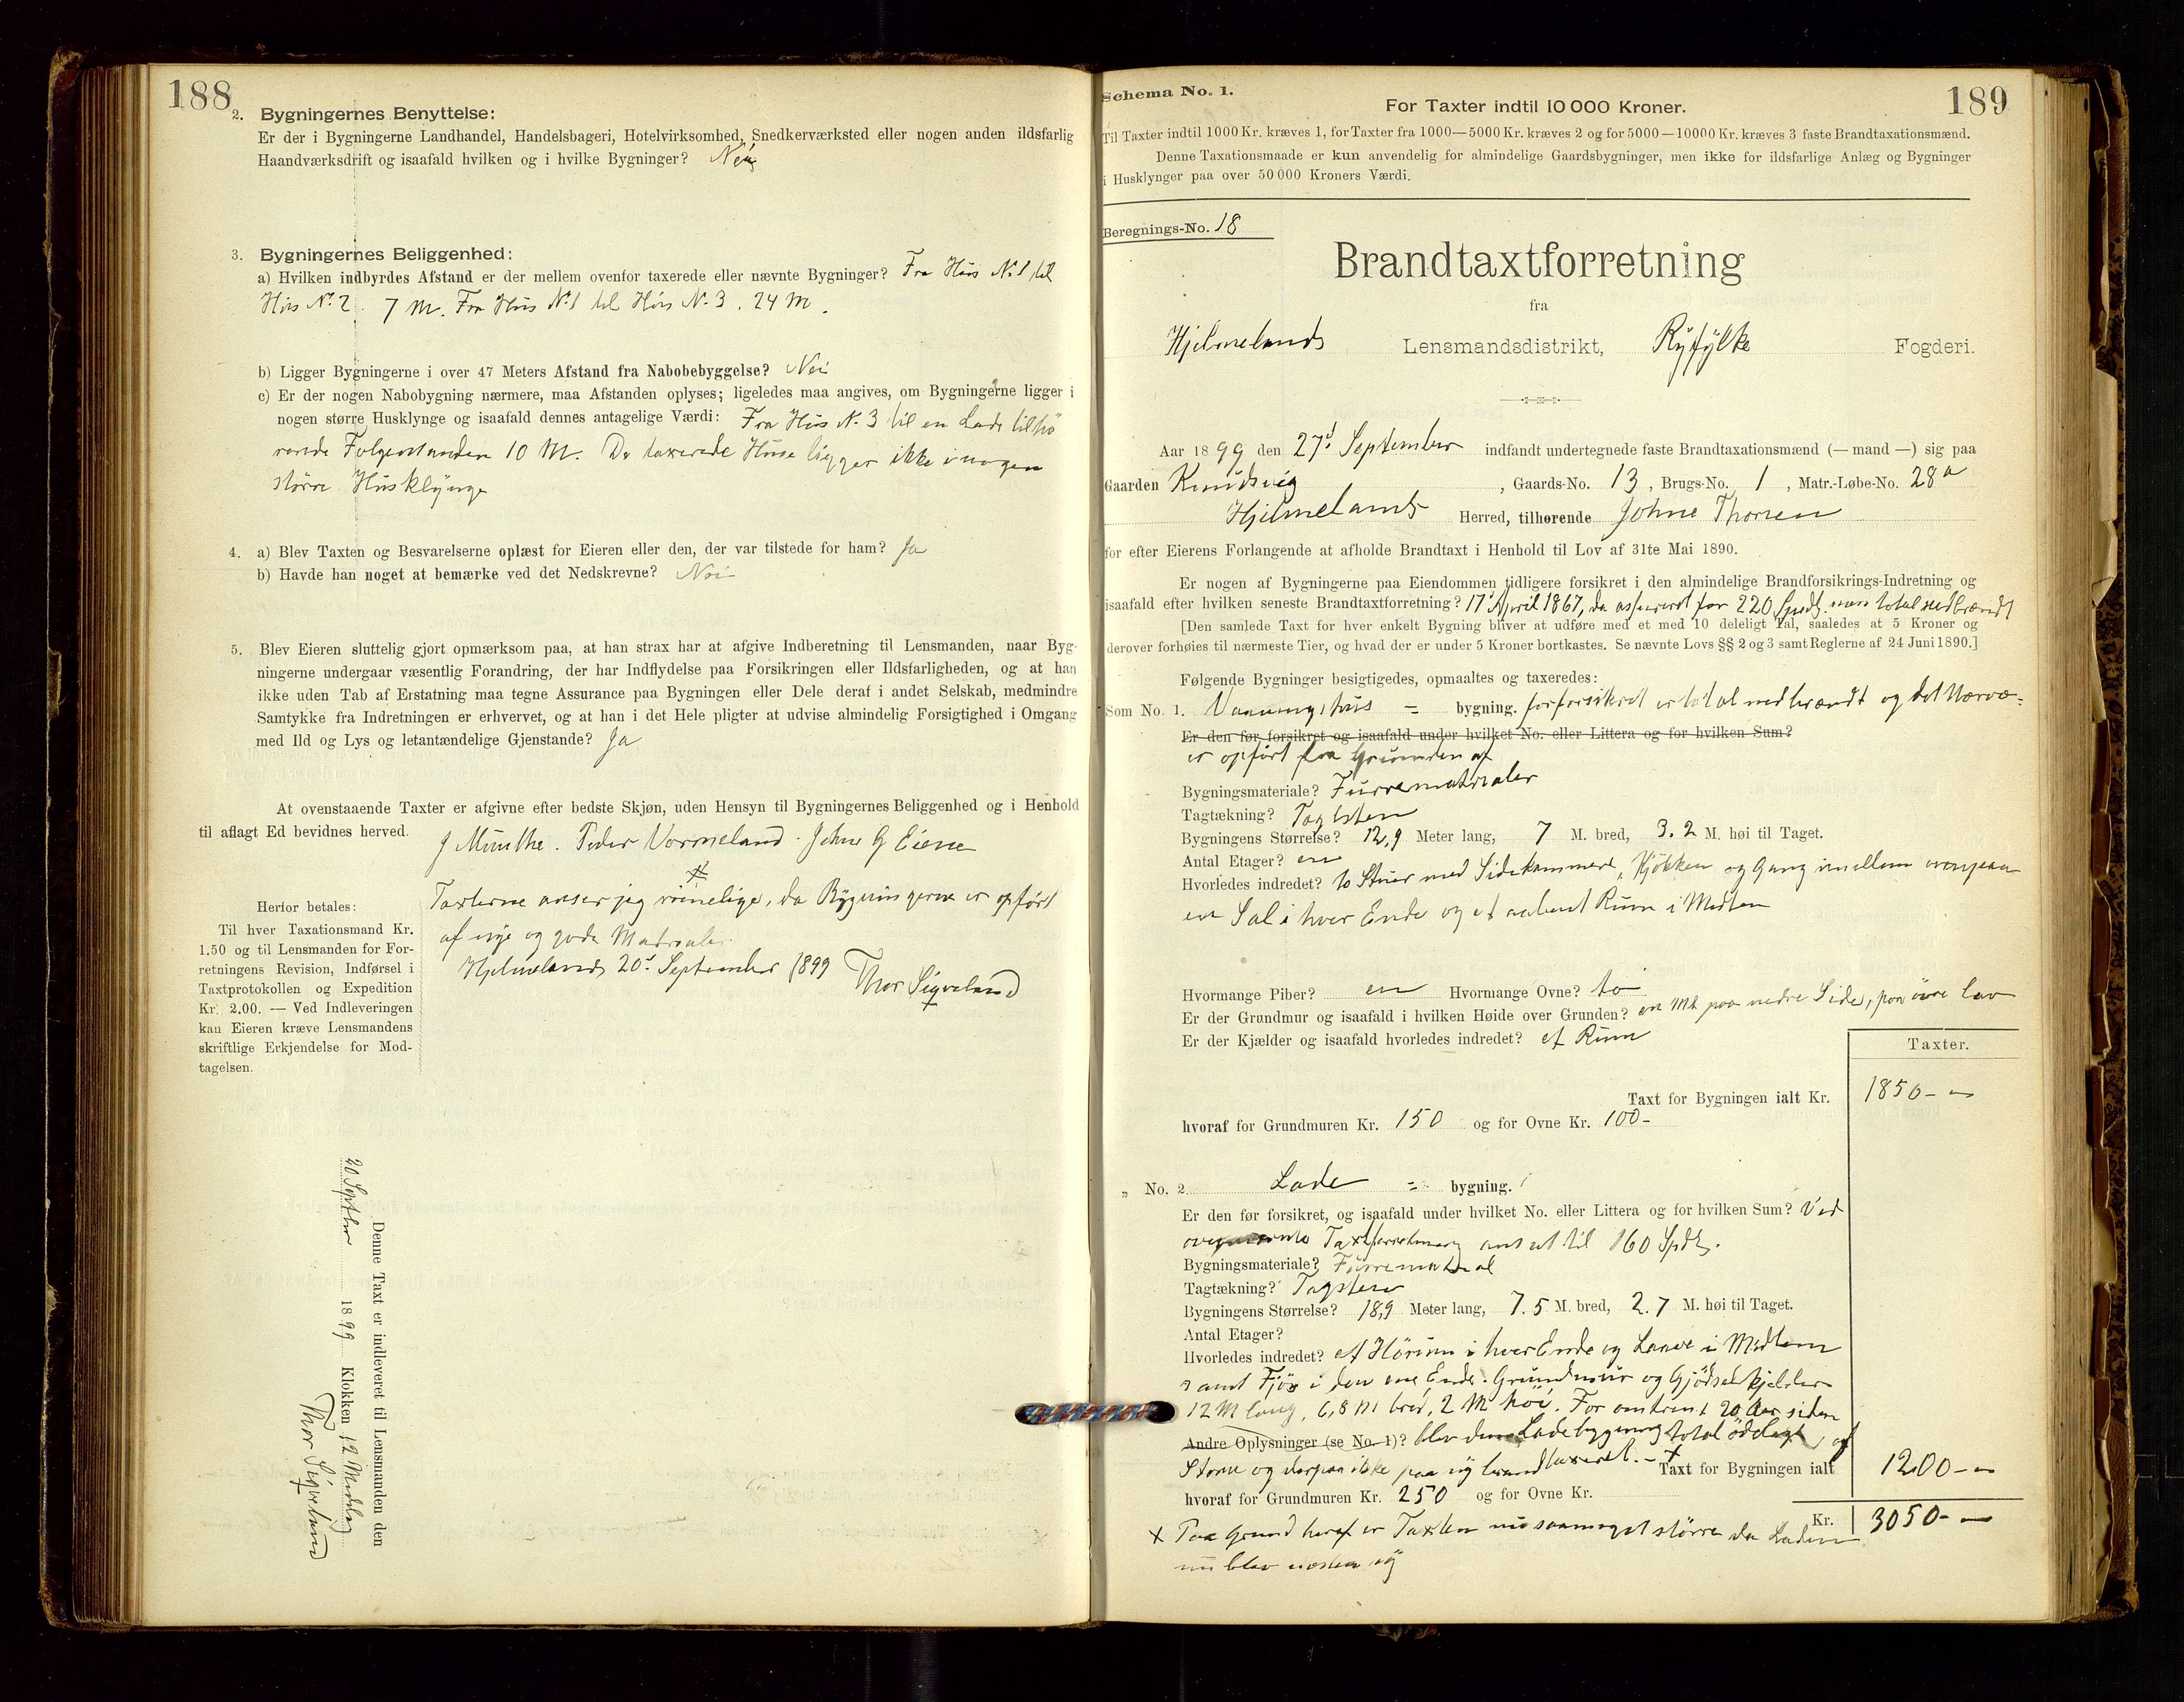 188
2. Bygningernes Benyttelse:
Er der i Bygningerne Landhandel, Handelsbageri, Hotelvirksomhed, Snedkerværksted eller nogen anden ildsfarlig
Haandværksdrift og isaafald hvilken og i hvilke Bygninger? Nei
3. Bygningernes Beliggenhed:
a) Hvilken indbyrdes Afstand er der mellem ovenfor taxerede eller nævnte Bygninger? Fra Hus No 1 til
Hus No 2 7 M. Fra Hus No 1 til Hus No 3. 24 M.
b) Ligger Bygningerne i over 47 Meters Afstand fra Nabobebyggelse? Nei
c) Er der nogen Nabobygning nærmere, maa Afstanden oplyses; ligeledes maa angives, om Bygningerne ligger i
nogen større Husklynge og isaafald dennes antagelige Værdi: Fra Hus No 3 til en Lade tilhö
rende Folgemanden 10 M. De taxerede Huse ligger ikke i nogen
större Husklynge
4. a) Blev Taxten og Besvarelserne oplæst for Eieren eller den, der var tilstede for ham? Ja
b) Havde han noget at bemærke ved det Nedskrevne? Nei
5. Blev Eieren sluttelig gjort opmærksom paa, at han strax har at afgive Indberetning til Lensmanden, naar Byg-
ningerne undergaar væsentlig Forandring, der har Indflydelse paa Forsikringen eller Ildsfarligheden, og at han
ikke uden Tab af Erstatning maa tegne Assurance paa Bygningen eller Dele deraf i andet Selskab, medmindre
Samtykke fra Indretningen er erhvervet, og at han i det Hele pligter at udvise almindelig Forsigtighed i Omgang
med Ild og Lys og letantændelige Gjenstande? Ja
At ovenstaaende Taxter er afgivne efter bedste Skjøn, uden Hensyn til Bygningernes Beliggenhed og i Henhold
til aflagt Ed bevidnes herved.
J Munthe. Peder Vormeland. Johne G Eiene
Taxterne anser jeg rimelige, da Bygningerne er opfört
af nye og gode Materialer.
Hjelmelands 20d September 1899 Thor Sigveland
Herfor betales:
Til hver Taxationsmand Kr.
1.50 og til Lensmanden for For-
retningens Revision, Indførsel i
Taxtprotokollen og Expedition
Kr. 2.00. — Ved Indleveringen
kan Eieren kræve Lensmandens
skriftlige Erkjendelse for Mod-
tagelsen.
Denne Taxt er indleveret til Lensmanden den
20 Septbr 1899 Klokken 12 Middag
Thor Sigveland
Schema No. 1.
189
For Taxter indtil 10 000 Kroner.
Til Taxter indtil 1000 Kr. kræves 1, for Taxter fra 1000—5000 Kr. kræves 2 og for 5000—10000 Kr. kræves 3 faste Brandtaxationsmænd.
Denne Taxationsmaade er kun anvendelig for almindelige Gaardsbygninger, men ikke for ildsfarlige Anlæg og Bygninger
i Husklynger paa over 50 000 Kroners Værdi.
Beregnings-No. 18
Brandtaxtforretning
fra
Hjelmelands Lensmandsdistrikt, Ryfylke Fogderi.
Aar 1899 den 27d September indfandt undertegnede faste Brandtaxationsmænd (—mand—) sig paa
Gaarden Knudsvig, Gaards-No. 13, Brugs-No. 1, Matr.-Løbe-No. 28a
Hjelmelands Herred, tilhørende Johne Thorsen
for efter Eierens Forlangende at afholde Brandtaxt i Henhold til Lov af 31te Mai 1890.
Er nogen af Bygningerne paa Eiendommen tidligere forsikret i den almindelige Brandforsikrings-Indretning og
isaafald efter hvilken seneste Brandtaxtforretning? 17 April 1867, da assureret for 220 Spdl. men total nedbrændt
[Den samlede Taxt for hver enkelt Bygning bliver at udføre med et med 10 deleligt Tal, saaledes at 5 Kroner og
derover forhøies til nærmeste Tier, og hvad der er under 5 Kroner bortkastes. Se nævnte Lovs §§ 2 og 3 samt Reglerne af 24 Juni 1890.]
Følgende Bygninger besigtigedes, opmaaltes og taxeredes:
Som No. 1. Vaaningshus = bygning. forforsikret er total nedbrændt og det Nærvæ-
Er den før forsikret og isaafald under hvilket No. eller Littera og for hvilken Sum?
er opfört paa Grunden af
Bygningsmateriale? Furrematerialer
Tagtækning? Tagsten
Bygningens Størrelse? 12,9 Meter lang, 7 M. bred, 3.2 M. høi til Taget.
Antal Etager? en
Hvorledes indredet? to Stuer med Sidekammere, Kjökken og Gang imellem ovenpaa
en Sal i hver Ende og et aabent Rum i Midten
Hvormange Piber? en Hvormange Ovne? to
Er der Grundmur og isaafald i hvilken Høide over Grunden? en Mt paa nedre Side, paa övre lav
Er der Kjælder og isaafald hvorledes indredet? et Rum
Taxter.
Taxt for Bygningen ialt Kr. 1850 - -
hvoraf for Grundmuren Kr. 150 og for Ovne Kr. 100 -
„ No. 2 Lade = bygning.
Er den før forsikret, og isaafald under hvilket No. eller Littera og for hvilken Sum? Ved
Taxtforretning ansat til 160 Spdl.
Bygningsmateriale? Furremateriал
Tagtækning? Tagsten
Bygningens Størrelse? 18,9 Meter lang, 7.5 M. bred, 2.7 M. høi til Taget.
Antal Etager?
Hvorledes indredet? et Hörum i hver Ende og Laave i Midten
samt Fjös i den ene Ende. Grundmur og Gjödselkjelder
12 M lang, 6,8 M bred, 2 M höi. For omtrent 20 Aar siden
Andre Oplysninger (se No. 1)? blev denne Ladebygning total ödelagt af
Storm og derpaa ikke paa ny brandtaxeret. - x Taxt for Bygningen ialt 1200 - -
hvoraf for Grundmuren Kr. 250 og for Ovne Kr.
Kr. 3050 - -
x Paa Grund heraf er Taxten nu saameget större da Laden
nu blev næsten ny